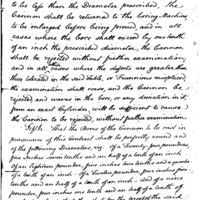 to be less than the Diameter prescribed, The
Cannon shall be returned to the Boring Machine
to be enlarged before being proved, and in all
cases where the bore shall exceed by one tenth
of an inch the prescribed diameter, the Cannon
shall be rejected without further examination,
and in all cases where the defects are greater than
those tolerated in the said Table, or Trunnions misplaced
the examination shall cease, and the Cannon be
rejected and waves in the bore, or any deviation in it
from an exact Cylinder, will be sufficient to cause
the Cannon to be rejected, without further examination.
Fifth That the Bores of the Cannon to be cast in
pursuance of this Contract shall be perfectly round and
of the following Diameters, viz. Of a Twenty four pounder,
five inches seven tenths and an half of a tenth of an inch
Of an Eighteen pounder, five inches two tenths and a quarter
of a tenth of an inch - Of a Twelve pounder, four inches six
tenths and an half of a tenth of an inch - And of a nine
pounder, four inches two tenths and an half of a tenth of